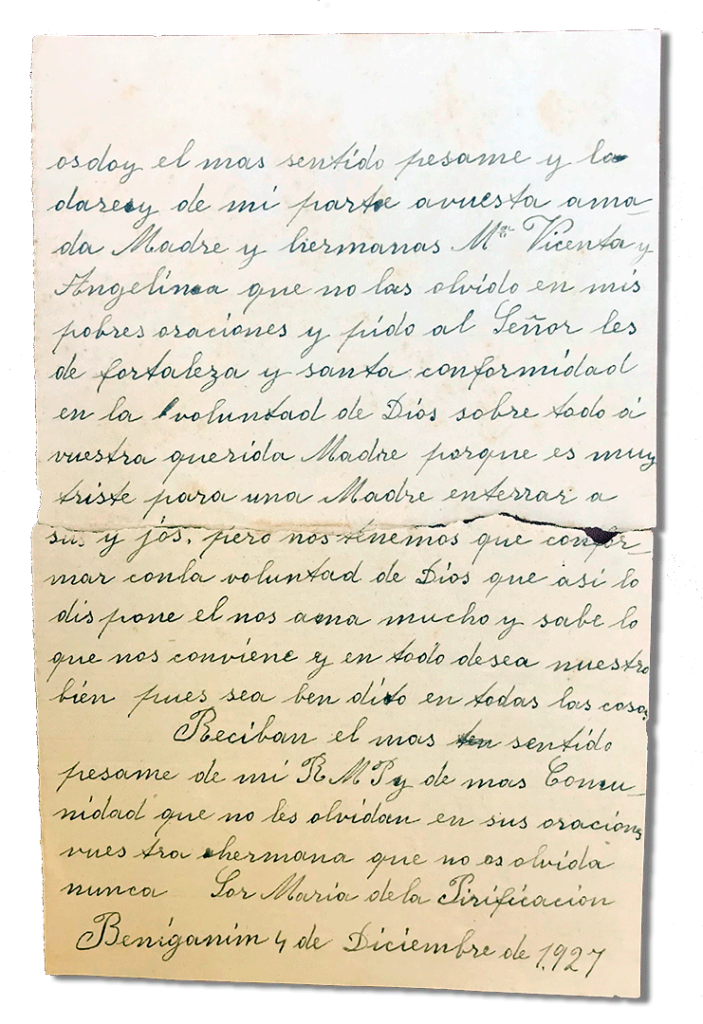 osdoy el mas sentido pesame y la
darеy de mi parte avuesta ama-
da Madre y hermanas Mª Vicenta y
Angelinea que no las olvido en mis
pobres oraciones y pido al Señor les
de fortaleza y santa conformidad
en la voluntad de Dios sobre todo á
vuestra querida Madre porque es muy
triste para una Madre enterrar a
sus y jos, pero nos tenemos que confor-
mar conla voluntad de Dios que asi lo
dispone el nos ama mucho y sabe lo
que nos conviene y en todo desea nuestro
bien pues sea ben dito en todas las cosas,
Reciban el mas sentido
pesame de mi R M P y de mas Comu-
nidad que no les olvidan en sus oracions
vues tra hermana que no os olvida
nunca Sor Maria dela Pirificacion
Beniganim 4 de Diciembre de 1.927